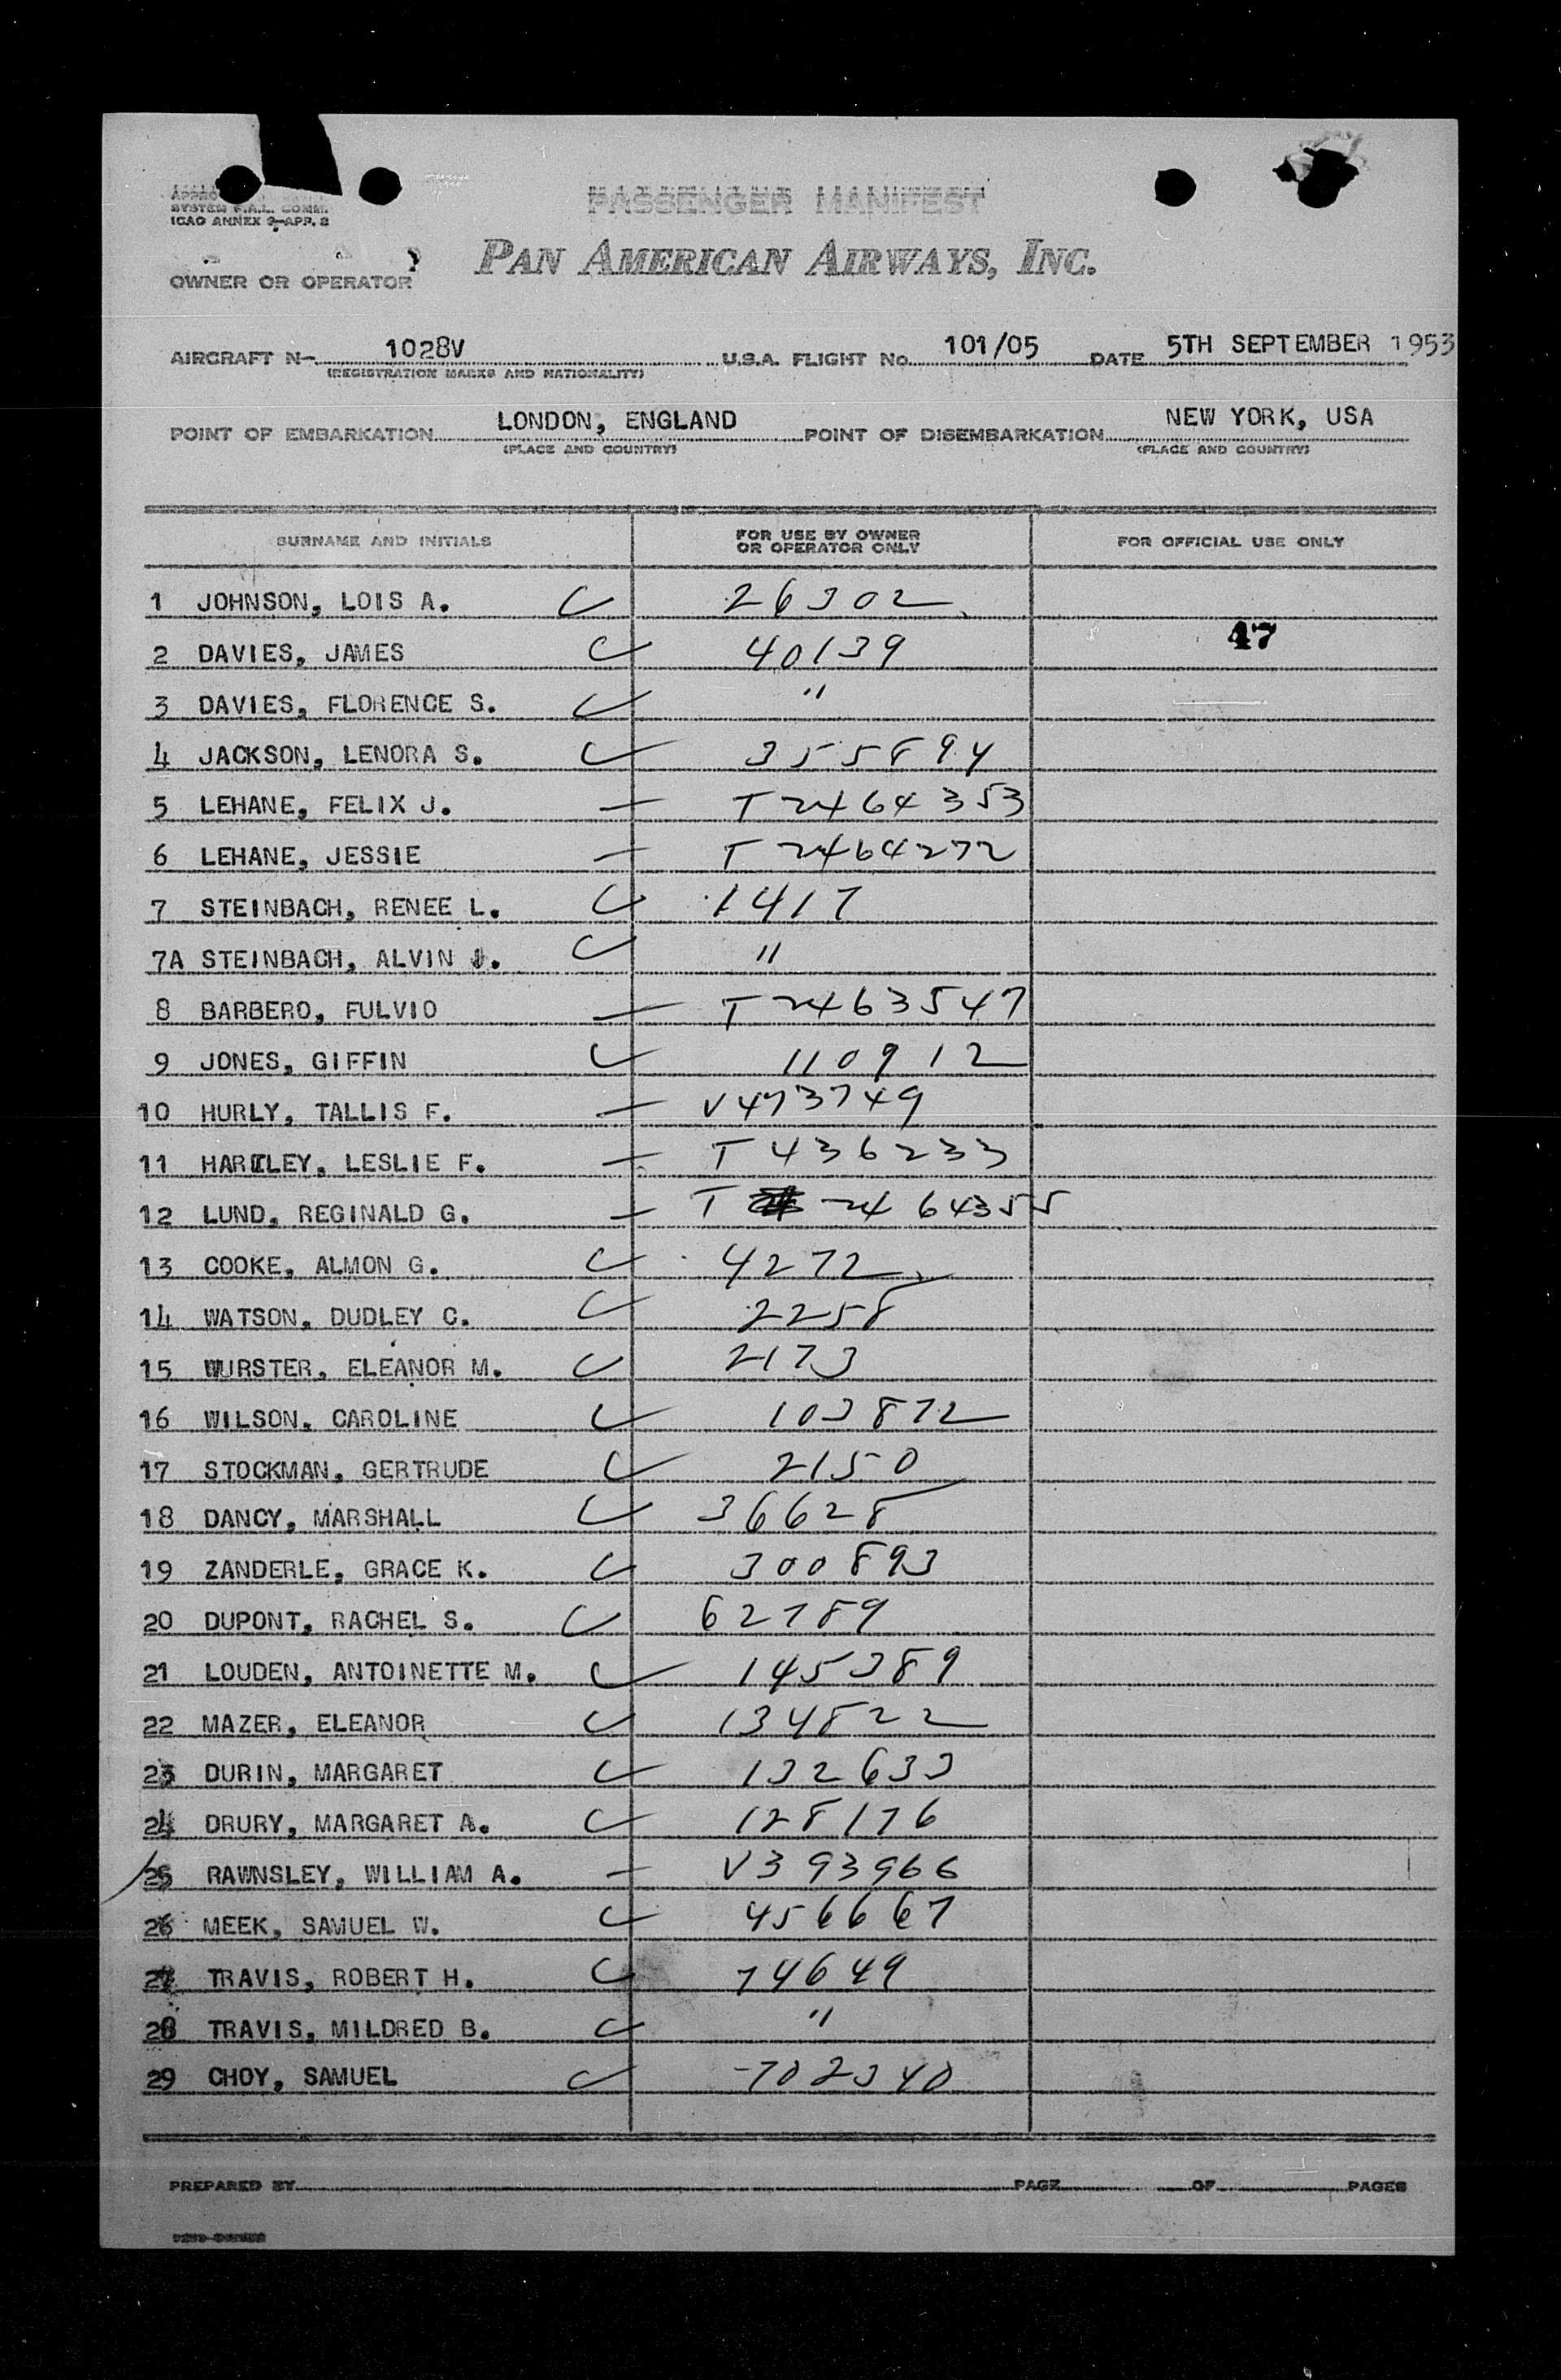 PASSENGER MANIFEST
SYSTEM F.A.L. COMM.
ICAO ANNEX 9-APP. 2
PAN AMERICAN AIRWAYS, INC.
OWNER OR OPERATOR
AIRCRAFT N- 1028V U.S.A. FLIGHT No. 101/05 DATE 5TH SEPTEMBER 1953
(REGISTRATION MARKS AND NATIONALITY)
POINT OF EMBARKATION LONDON, ENGLAND POINT OF DISEMBARKATION NEW YORK, USA
(PLACE AND COUNTRY) (PLACE AND COUNTRY)
SURNAME AND INITIALS FOR USE BY OWNER OR OPERATOR ONLY FOR OFFICIAL USE ONLY
1 JOHNSON, LOIS A. 26302
47
2 DAVIES, JAMES 40139
3 DAVIES, FLORENCE S. "
4 JACKSON, LENORA S. 355894
5 LEHANE, FELIX J. — T 2464353
6 LEHANE, JESSIE — T 2464272
7 STEINBACH, RENEE L. 1417
7A STEINBACH, ALVIN J. "
8 BARBERO, FULVIO — T 2463547
9 JONES, GIFFIN 110912
10 HURLY, TALLIS F. — V473749
11 HARTLEY, LESLIE F. — T 436233
12 LUND, REGINALD G. — T 24 64355
13 COOKE, ALMON G. 4272
14 WATSON, DUDLEY C. 2258
15 WURSTER, ELEANOR M. 2173
16 WILSON, CAROLINE 103872
17 STOCKMAN, GERTRUDE 2150
18 DANCY, MARSHALL 36628
19 ZANDERLE, GRACE K. 300893
20 DUPONT, RACHEL S. 62789
21 LOUDEN, ANTOINETTE M. 145389
22 MAZER, ELEANOR 134822
23 DURIN, MARGARET 132633
24 DRURY, MARGARET A. 128176
25 RAWNSLEY, WILLIAM A. — V393966
26 MEEK, SAMUEL W. 456667
27 TRAVIS, ROBERT H. 74649
28 TRAVIS, MILDRED B. "
29 CHOY, SAMUEL 702340
PREPARED BY PAGE OF PAGES